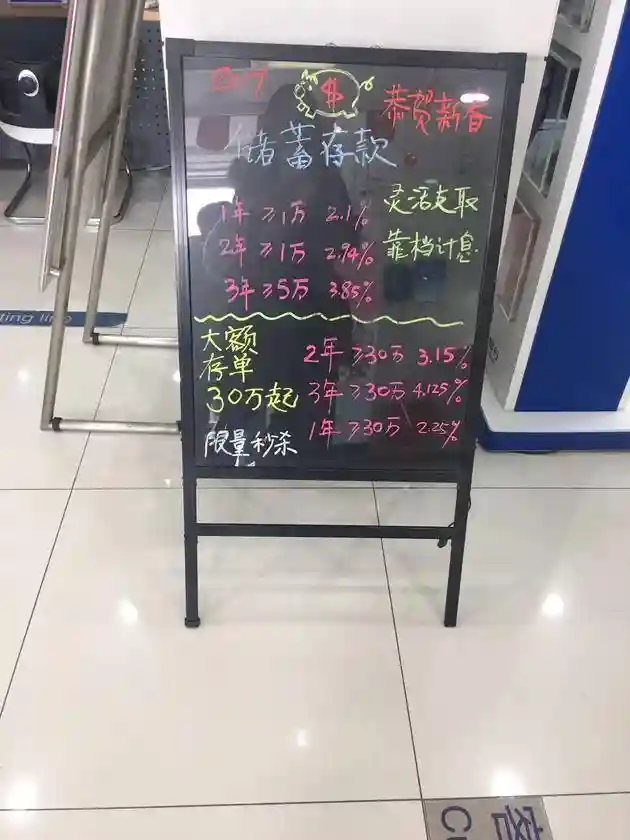 $
恭贺新春
储蓄存款
1年 ≥1万 2.1%
2年 ≥1万 2.94%
3年 ≥5万 3.85%
灵活支取
靠档计息
大额
存单
30万起
限量秒杀
2年 ≥30万 3.15%
3年 ≥30万 4.125%
1年 ≥30万 2.25%
ting line